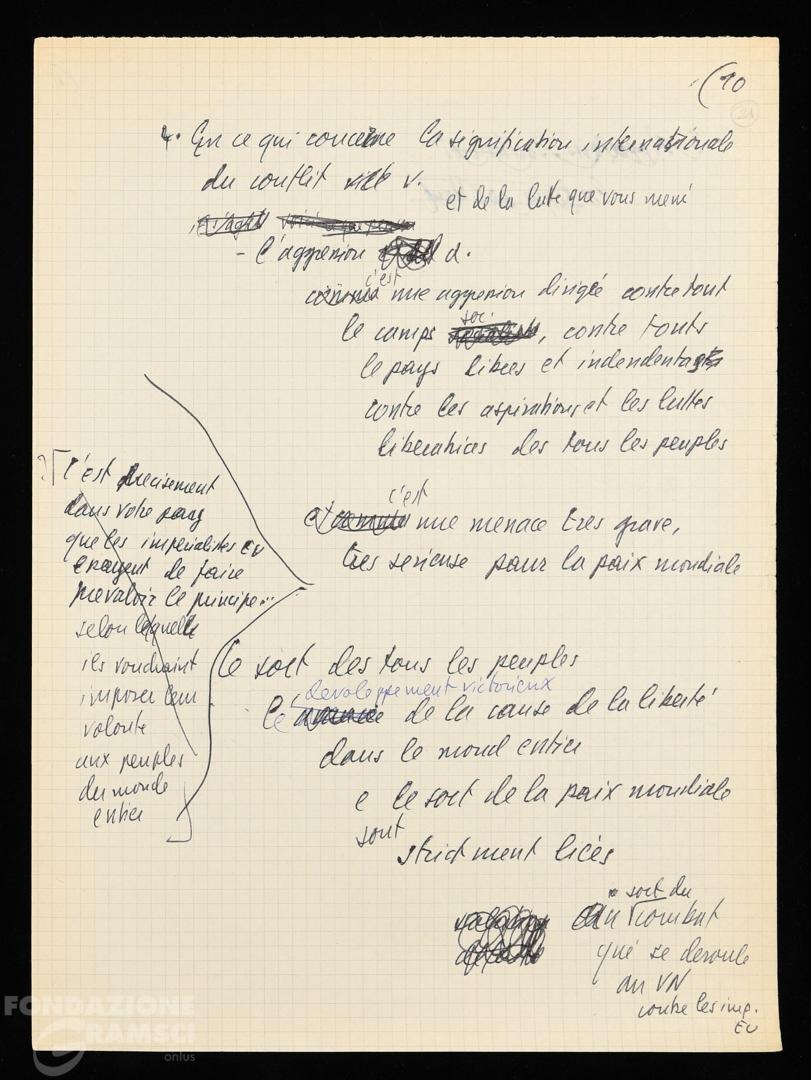 (10
21
4. En ce qui concerne la signification internationale
du conflit v.
et de la lute que vous mené
- l'aggression d.
c'est
une aggression dirigée contre tout
le camps soc., contre touts
le pays libees et
contre les aspirations et les luttes
liberatrices des tous les peuples
c'est
une menace tres grave,
tres serieuse pour la paix mondiale
C'est precisement
dans votre pays
que les imperialistes EU
de faire
prevaloir le principe...
selon lequelle
ils voudraint
imposer leur
volonte
aux peuples
du monde
entier
le sort des tous les peuples
developpement victorieux
le de la cause de la liberté
dans le mond entier
e le sort de la paix mondiale
sont
strictment liés
sort du
combat
qué se deroule
au VN
contre les imp.
EU
FONDAZIONE
GRAMSCI
onlus